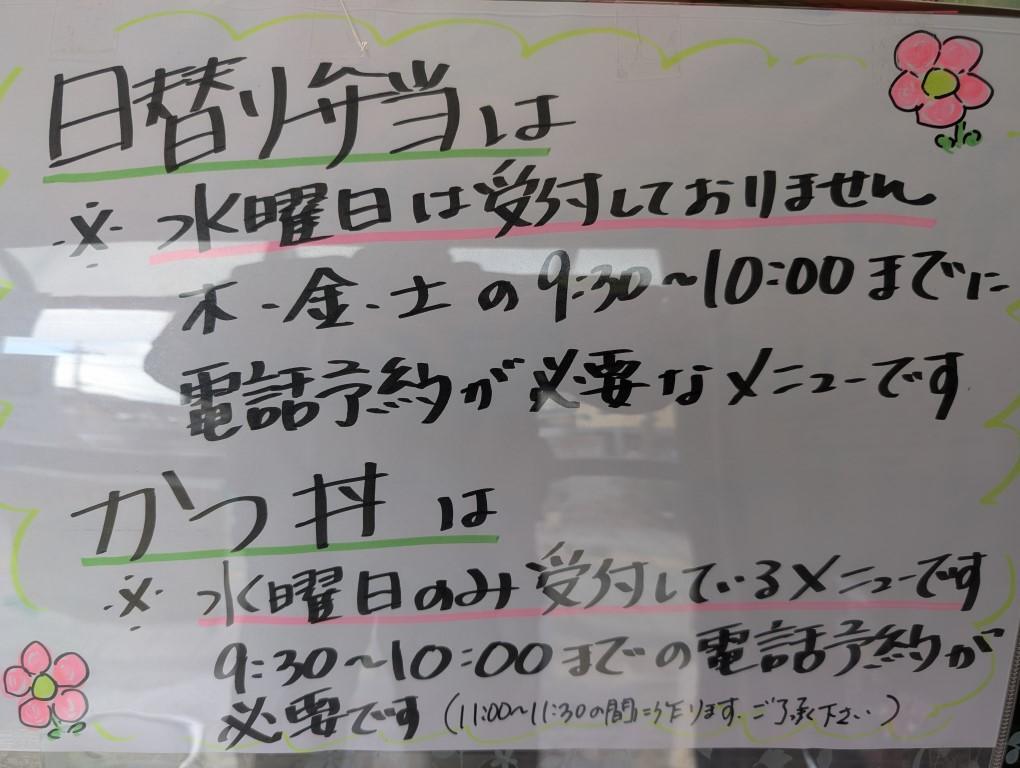 日替り弁当は
※ 水曜日は受付しておりません
木・金・土の9:30~10:00までに
電話予約が必要なメニューです
かつ丼は
※ 水曜日のみ受付しているメニューです
9:30~10:00までの電話予約が
必要です(11:00~11:30の間に作ります。ご了承下さい)